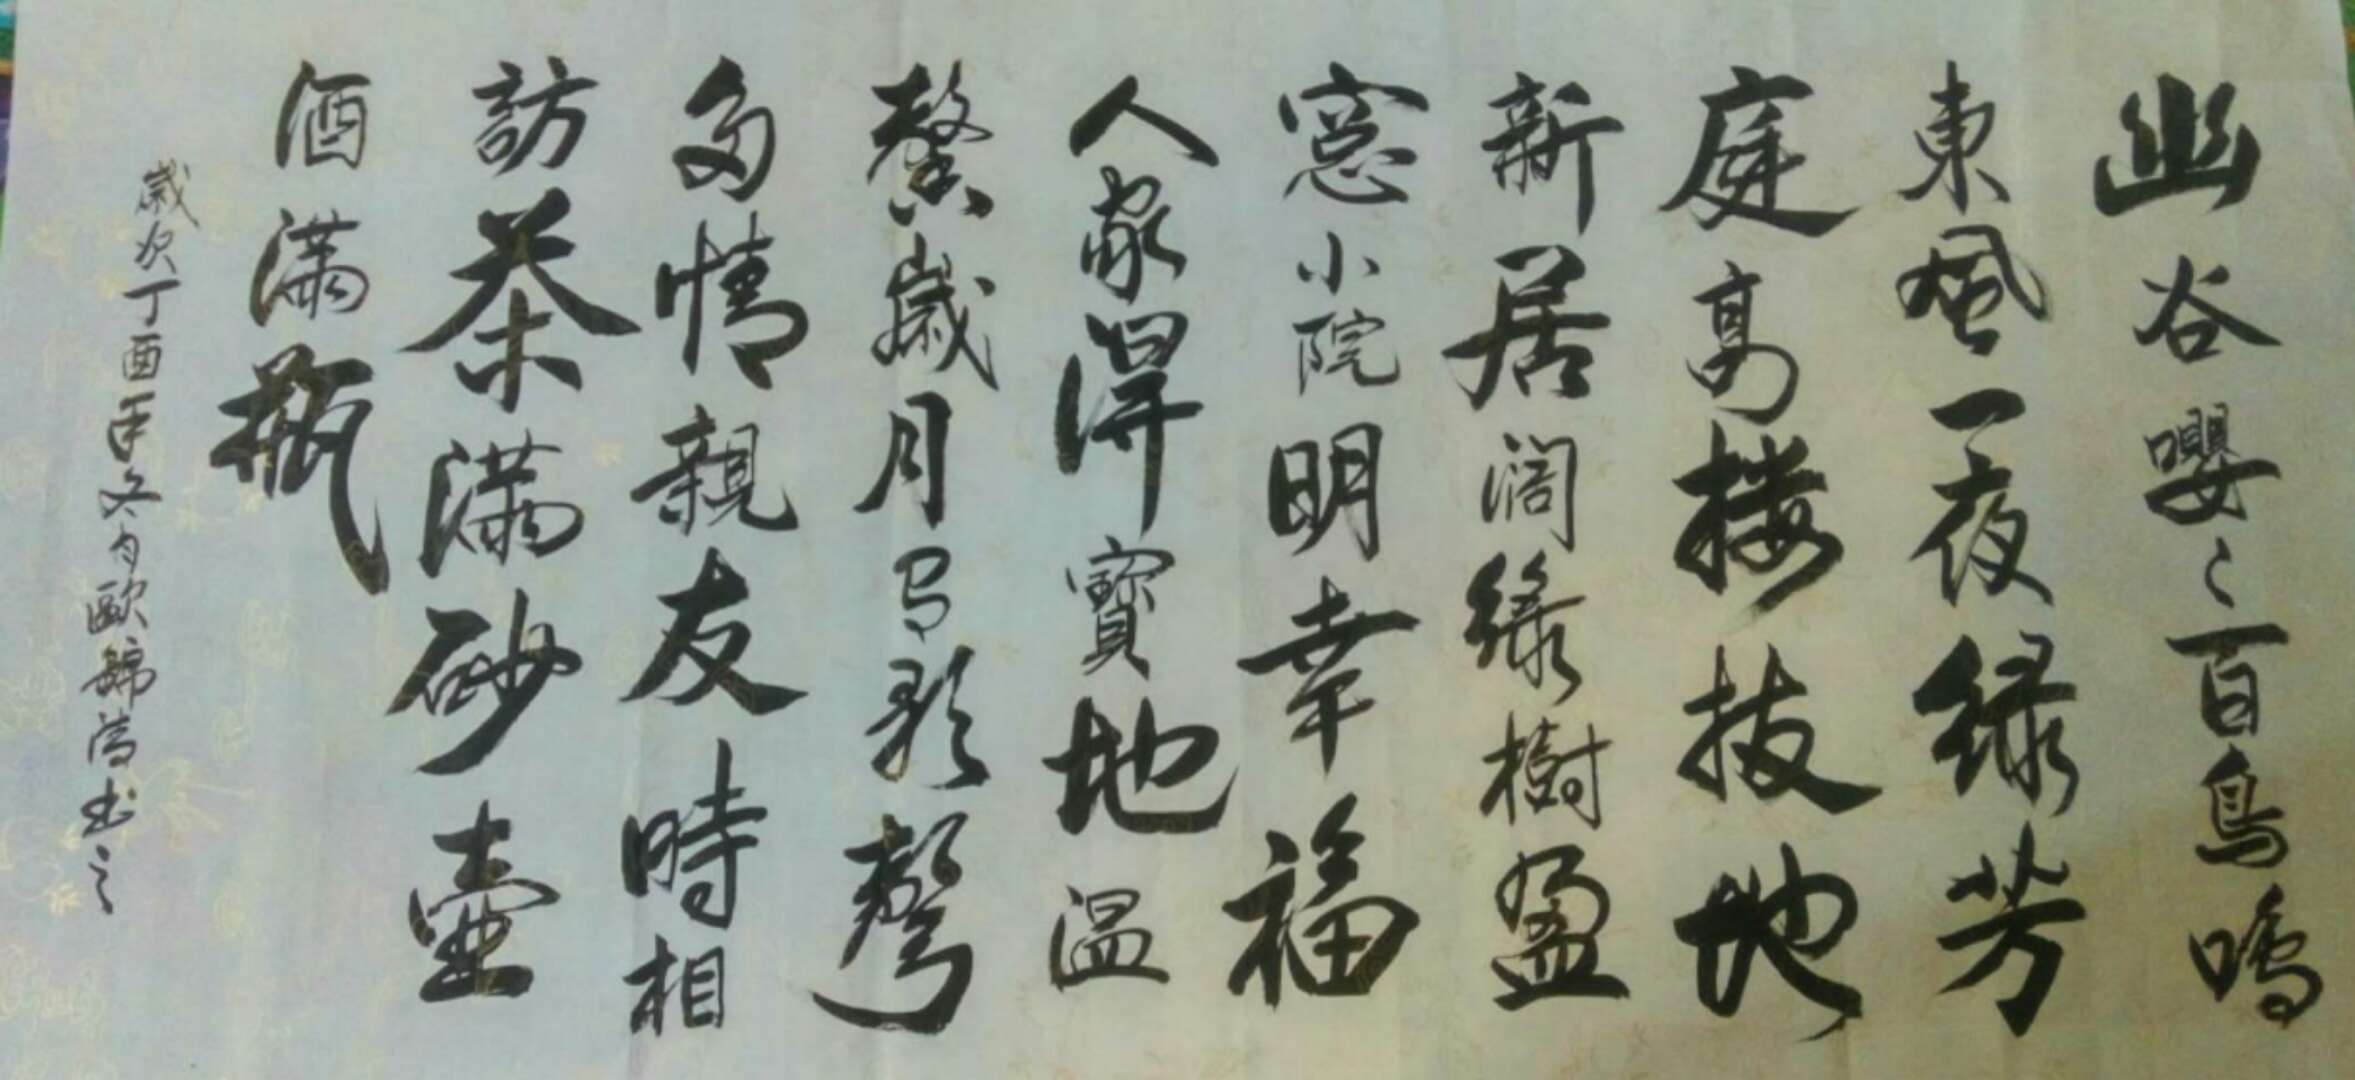 幽谷嚶々百鳥鳴
東風一夜緑芳
庭高楼拔地
新居阔緑樹盈
窓小院明幸福
人家得寶地温
馨歲月弓彩聲
多情親友時相
訪茶满砂壺
酒满瓶
歲次丁酉年冬月歐錦清书之